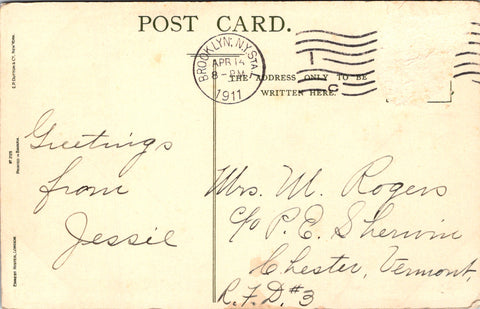 POST CARD.
BROOKLYN, N.Y. STA.
APR 14
8-PM
1911
1
C
THE ADDRESS ONLY TO BE
WRITTEN HERE.
Greetings
from
Jessie
Mrs. M. Rogers
c/o P. E. Sherwin
Chester, Vermont,
R.F.D. #3
E.P. DUTTON & CO. NEW YORK.
PRINTED IN BAVARIA
ERNEST NISTER, LONDON